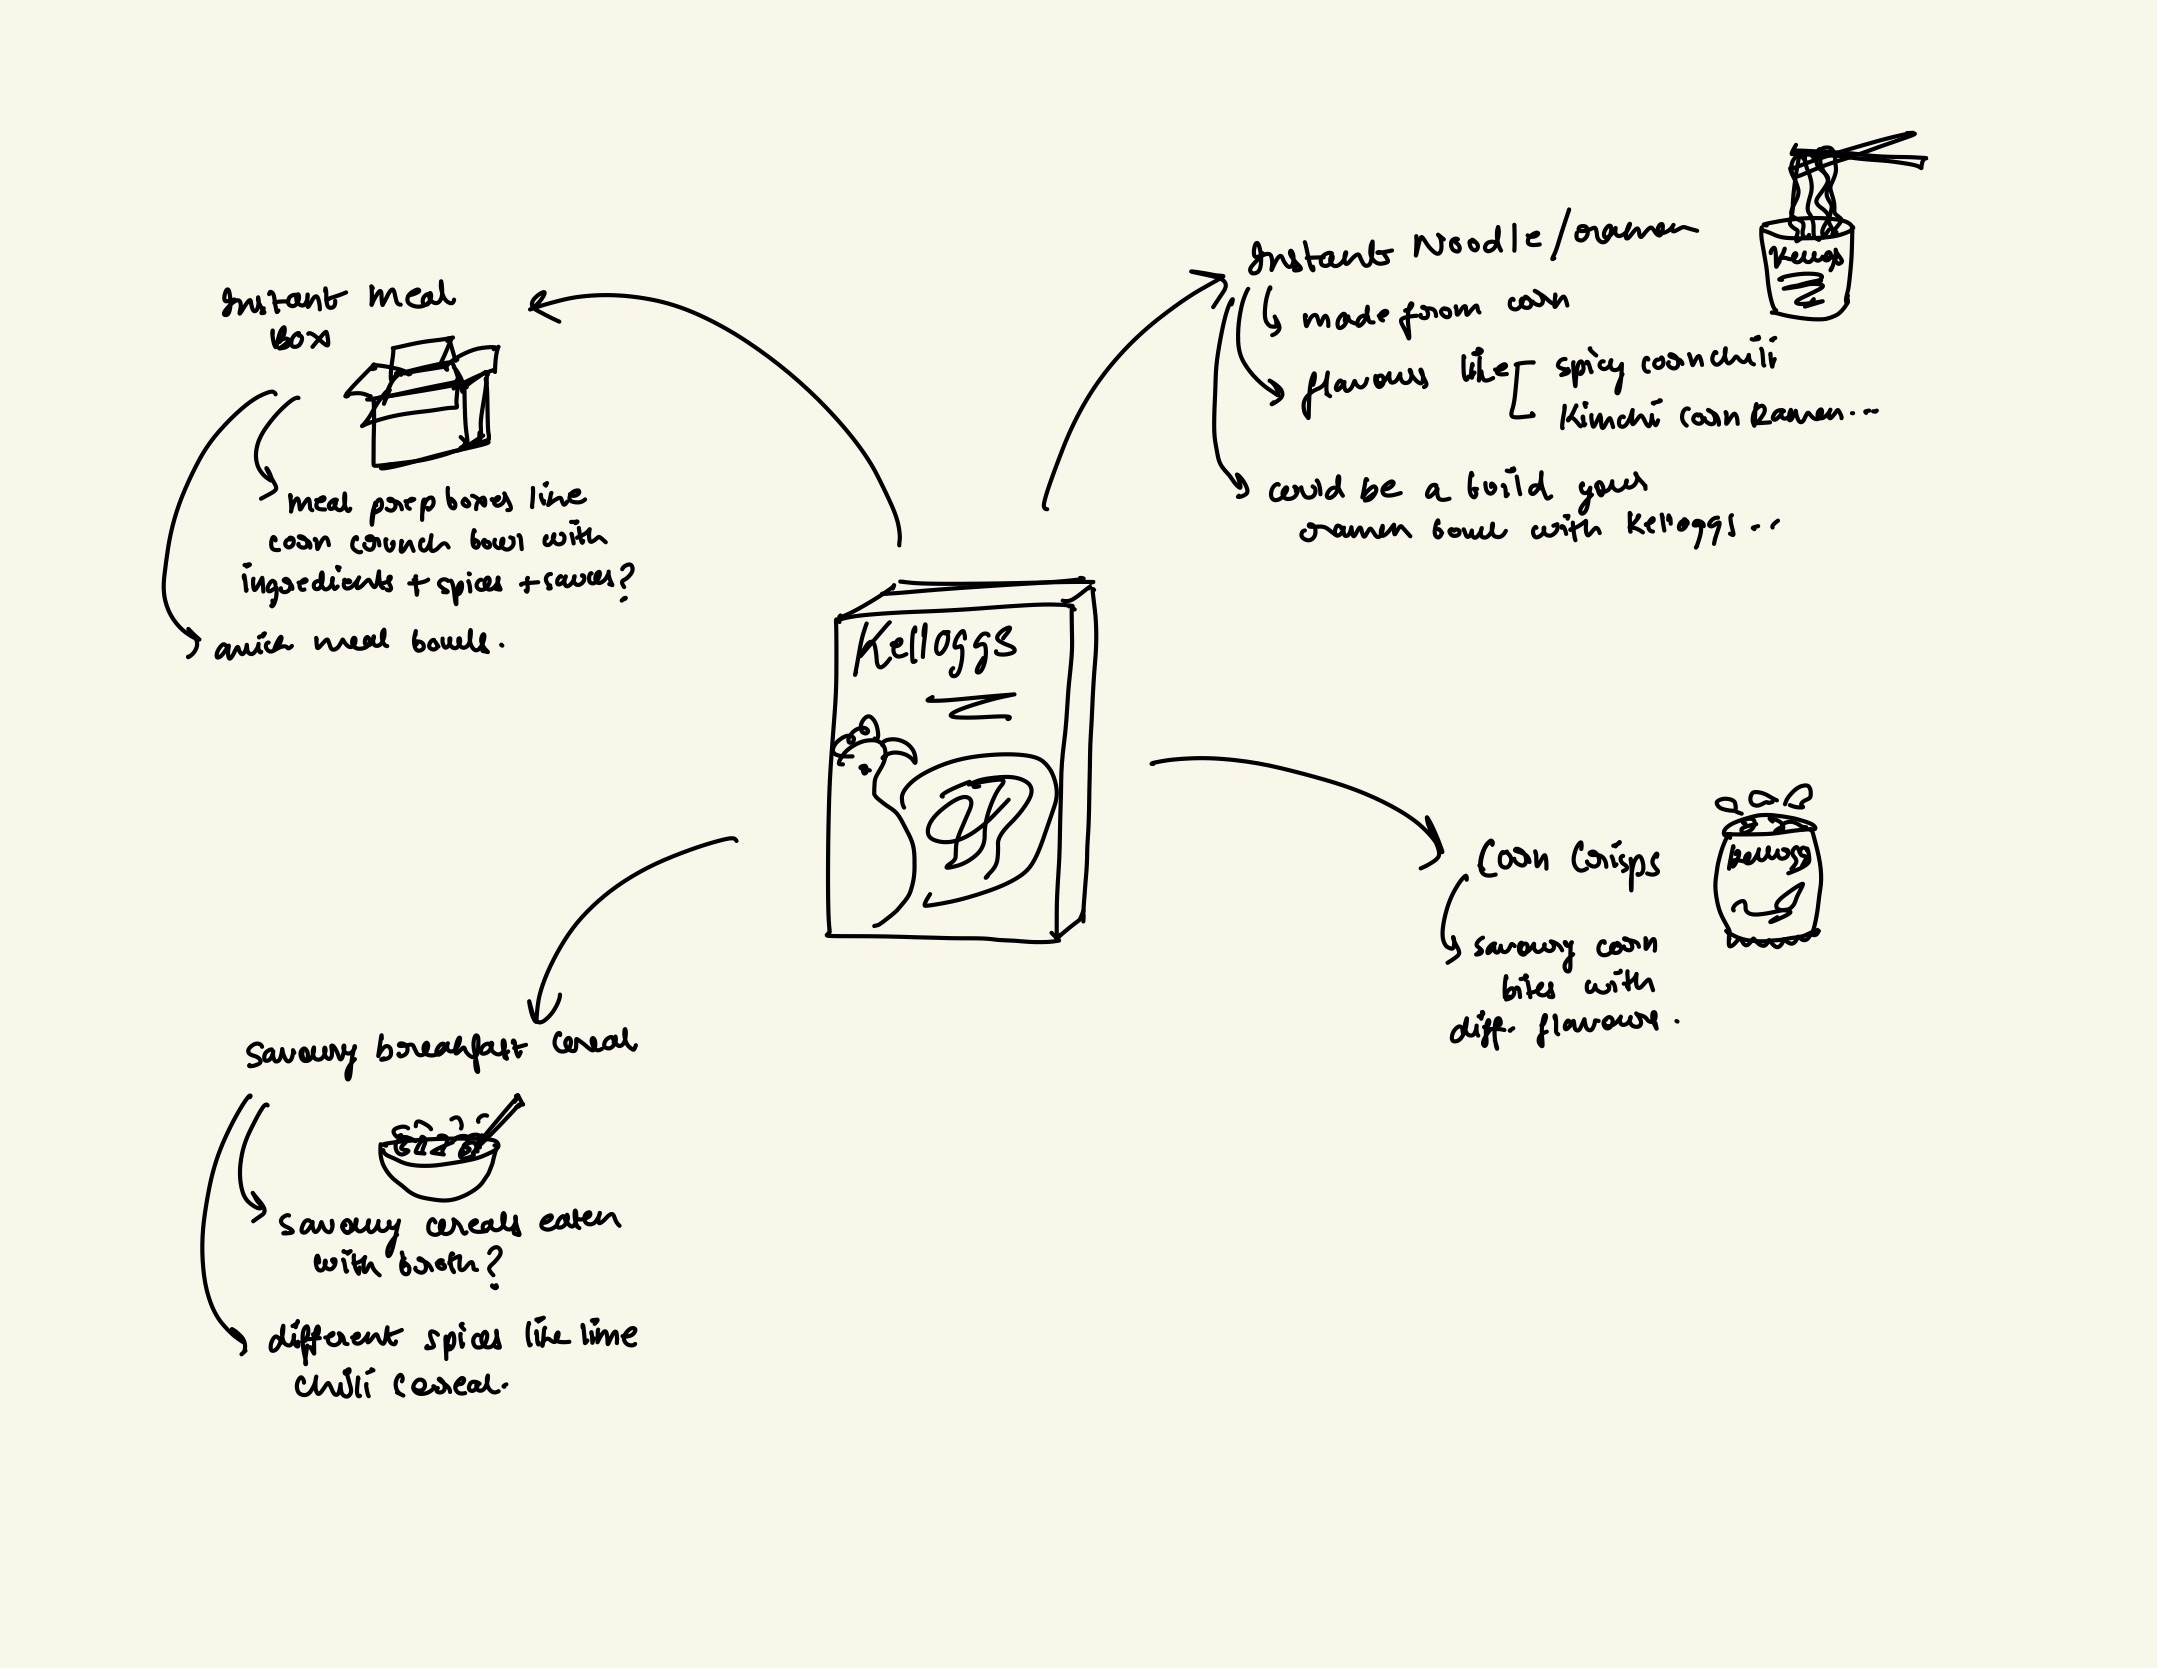 Instant Meal
Box
meal prep boxes like
corn crunch bowl with
ingredients + spices + sauces?
quick meal bowls.
Instant Noodle/ramen
made from corn
flavours like
spicy corn chilli
Kimchi corn Ramen...
could be a build your
ramen bowl with Kelloggs...
Kelloggs
Kelloggs
Corn Crisps
savoury corn
bites with
diff. flavours.
Kelloggs
Savoury breakfast cereal
savoury cereals eaten
with broth?
different spices like lime
chilli Cereal.